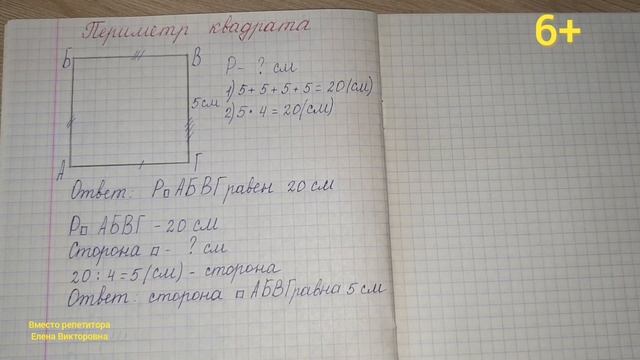 Периметр квадрата
6+
Б
В
5см
А
Г
P - ? см
1) 5+5+5+5=20(см)
2) 5·4=20(см)
Ответ: P□АБВГ равен 20 см
P□ АБВГ - 20 см
Сторона □ - ? см
20:4=5(см) - сторона
Ответ: сторона □ АБВГ равна 5 см
Вместо репетитора
Елена Викторовна